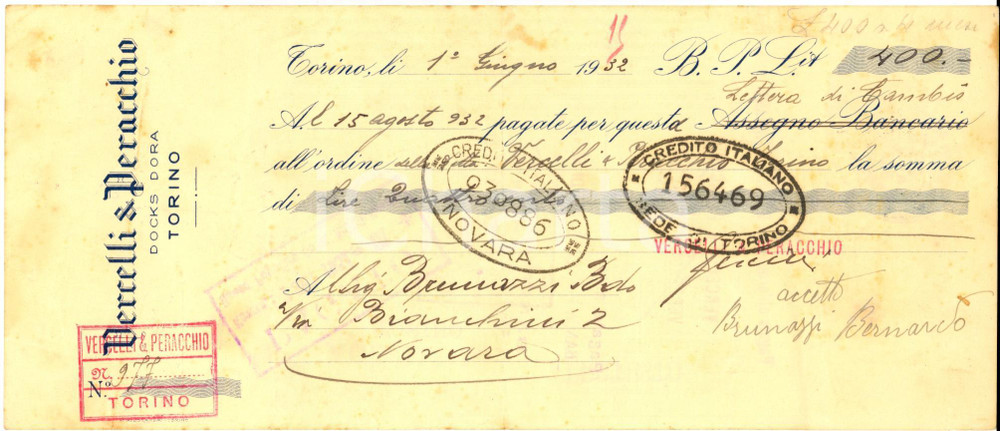 £ 400
Vercelli & Peracchio
DOCKS DORA
TORINO
Torino, li 1º Giugno 1932 B. P. Lit 400.-
Lettera di Cambio
Al 15 agosto 932 pagate per questa Assegno Bancario
all'ordine della Vercelli & Peracchio Torino la somma
di lire Quattrocento
CREDITO ITALIANO
030886
NOVARA
CREDITO ITALIANO
156469
SEDE DI TORINO
VERCELLI & PERACCHIO
Al Sig Brunazzi B.do
Via Bianchini 2
Novara
accetto
Brunazzi Bernardo
VERCELLI & PERACCHIO
N. 977
TORINO